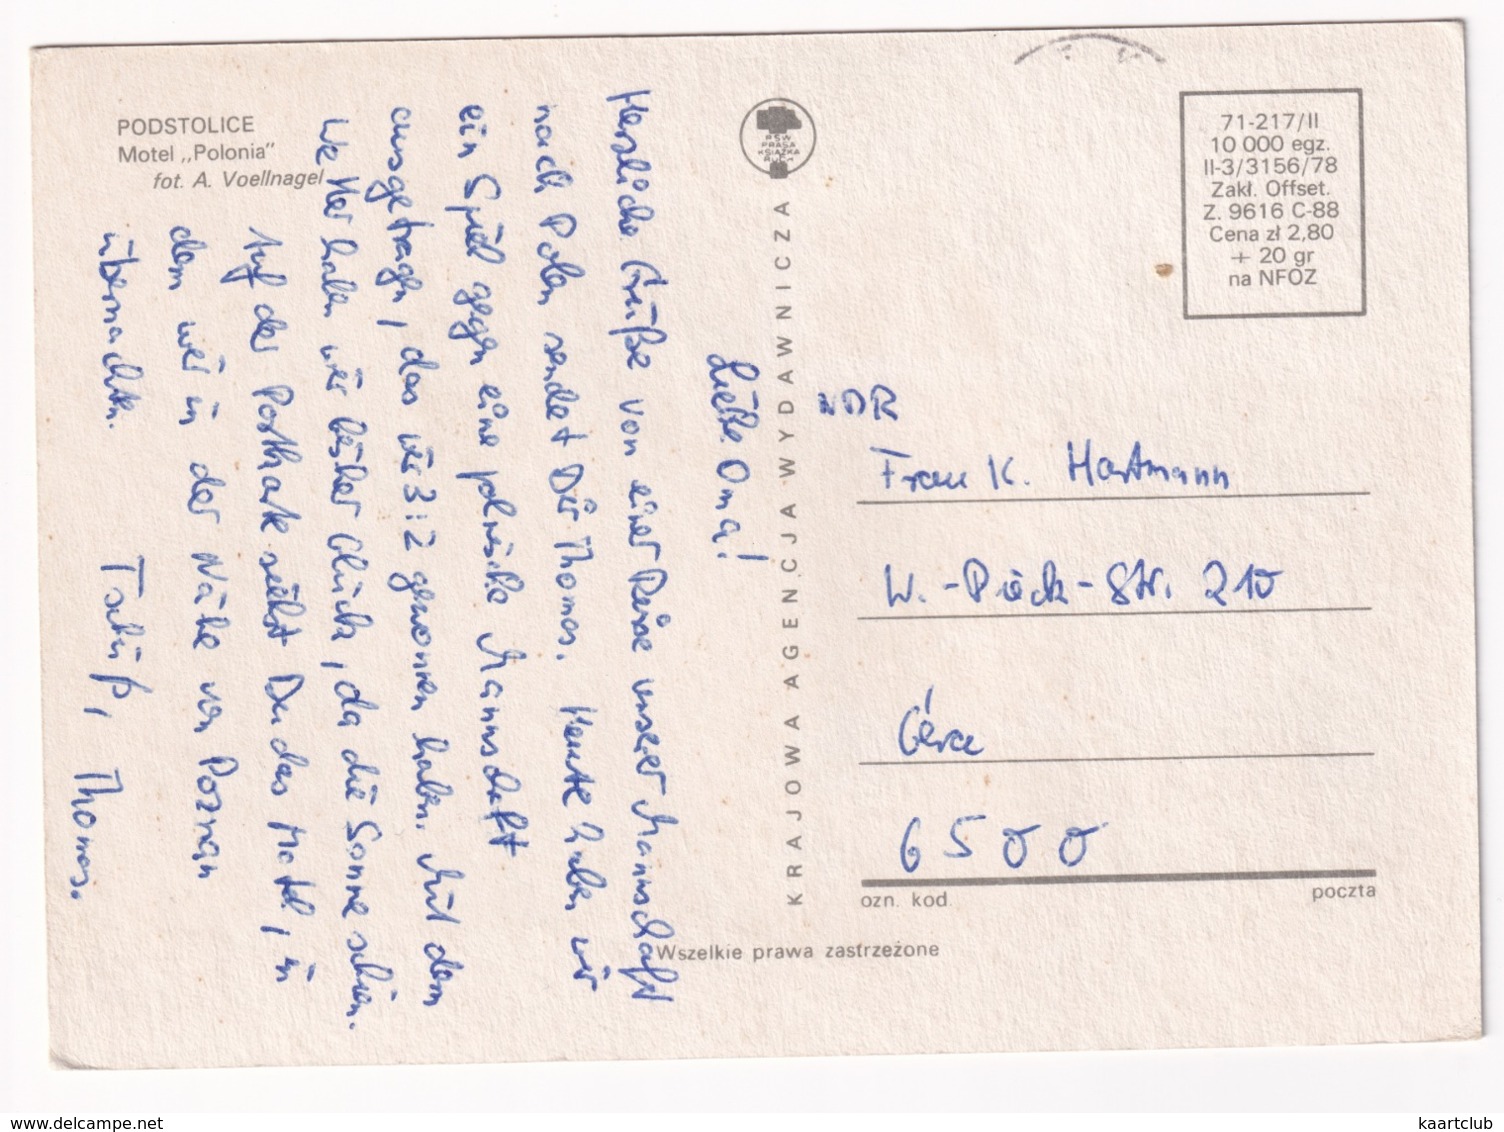 PODSTOLICE
Motel „Polonia”
fot. A. Voellnagel
Liebe Oma!
Herzliche Grüße von einer Reise unser Mannschaft
nach Polen sendet Dir Thomas. Heute haben wir
ein Spiel gegen eine polnische Mannschaft
ausgetragen, das wir 3:2 gewonnen haben. Mit dem
Wetter haben wir bisher Glück, da die Sonne schien.
Auf der Postkarte siehst Du das Motel, in
dem wir in der Nähe von Poznan
übernachten. Tschüß, Thomas.
RSW
PRASA
KSIĄŻKA
RUCH
KRAJOWA AGENCJA WYDAWNICZA
71-217/II
10 000 egz.
II-3/3156/78
Zakł. Offset.
Z. 9616 C-88
Cena zł 2,80
+ 20 gr
na NFOZ
DDR
Frau K. Hartmann
W.-Pieck-Str. 210
Gera
6500
ozn. kod.
poczta
Wszelkie prawa zastrzeżone
kaartclub